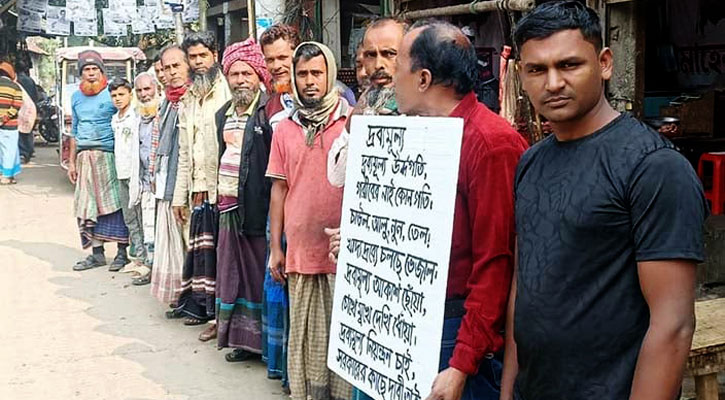 দ্রব্যমূল্য
দ্রব্যমূল্য উর্দ্ধগতি,
গরীবের নাই কোন গতি,
চাউল, আলু, নুন, তেল,
খাদ্য দ্রব্যে চলছে ভেজাল,
দ্রব্যমূল্য আকাশ ছোঁয়া,
চোখে মুখে দেখি ধোঁয়া,
দ্রব্যমূল্য নিয়ন্ত্রন চাই,
সরকারের কাছে দাবী